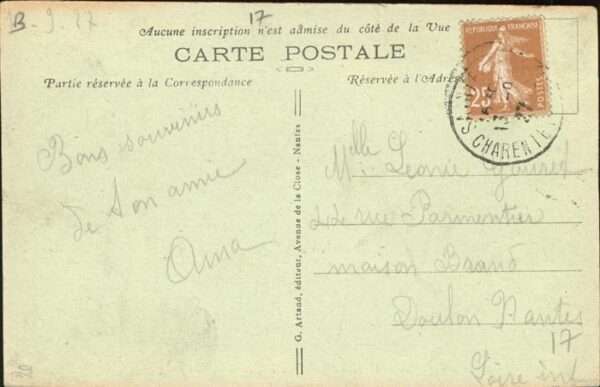 B-9.17
17
Aucune inscription n'est admise du côté de la Vue
CARTE POSTALE
Partie réservée à la Correspondance
Réservée à l'Adres
REPUBLIQUE FRANÇAISE
25
POSTES
CHARENTE
Bons souvenirs
de ton amie
Anna
G. Artaud, éditeur, Avenue de la Close - Nantes
Mlle Léonie
22 rue Parmentier
maison Brand
Doulon Nantes
17
Loire inf
20